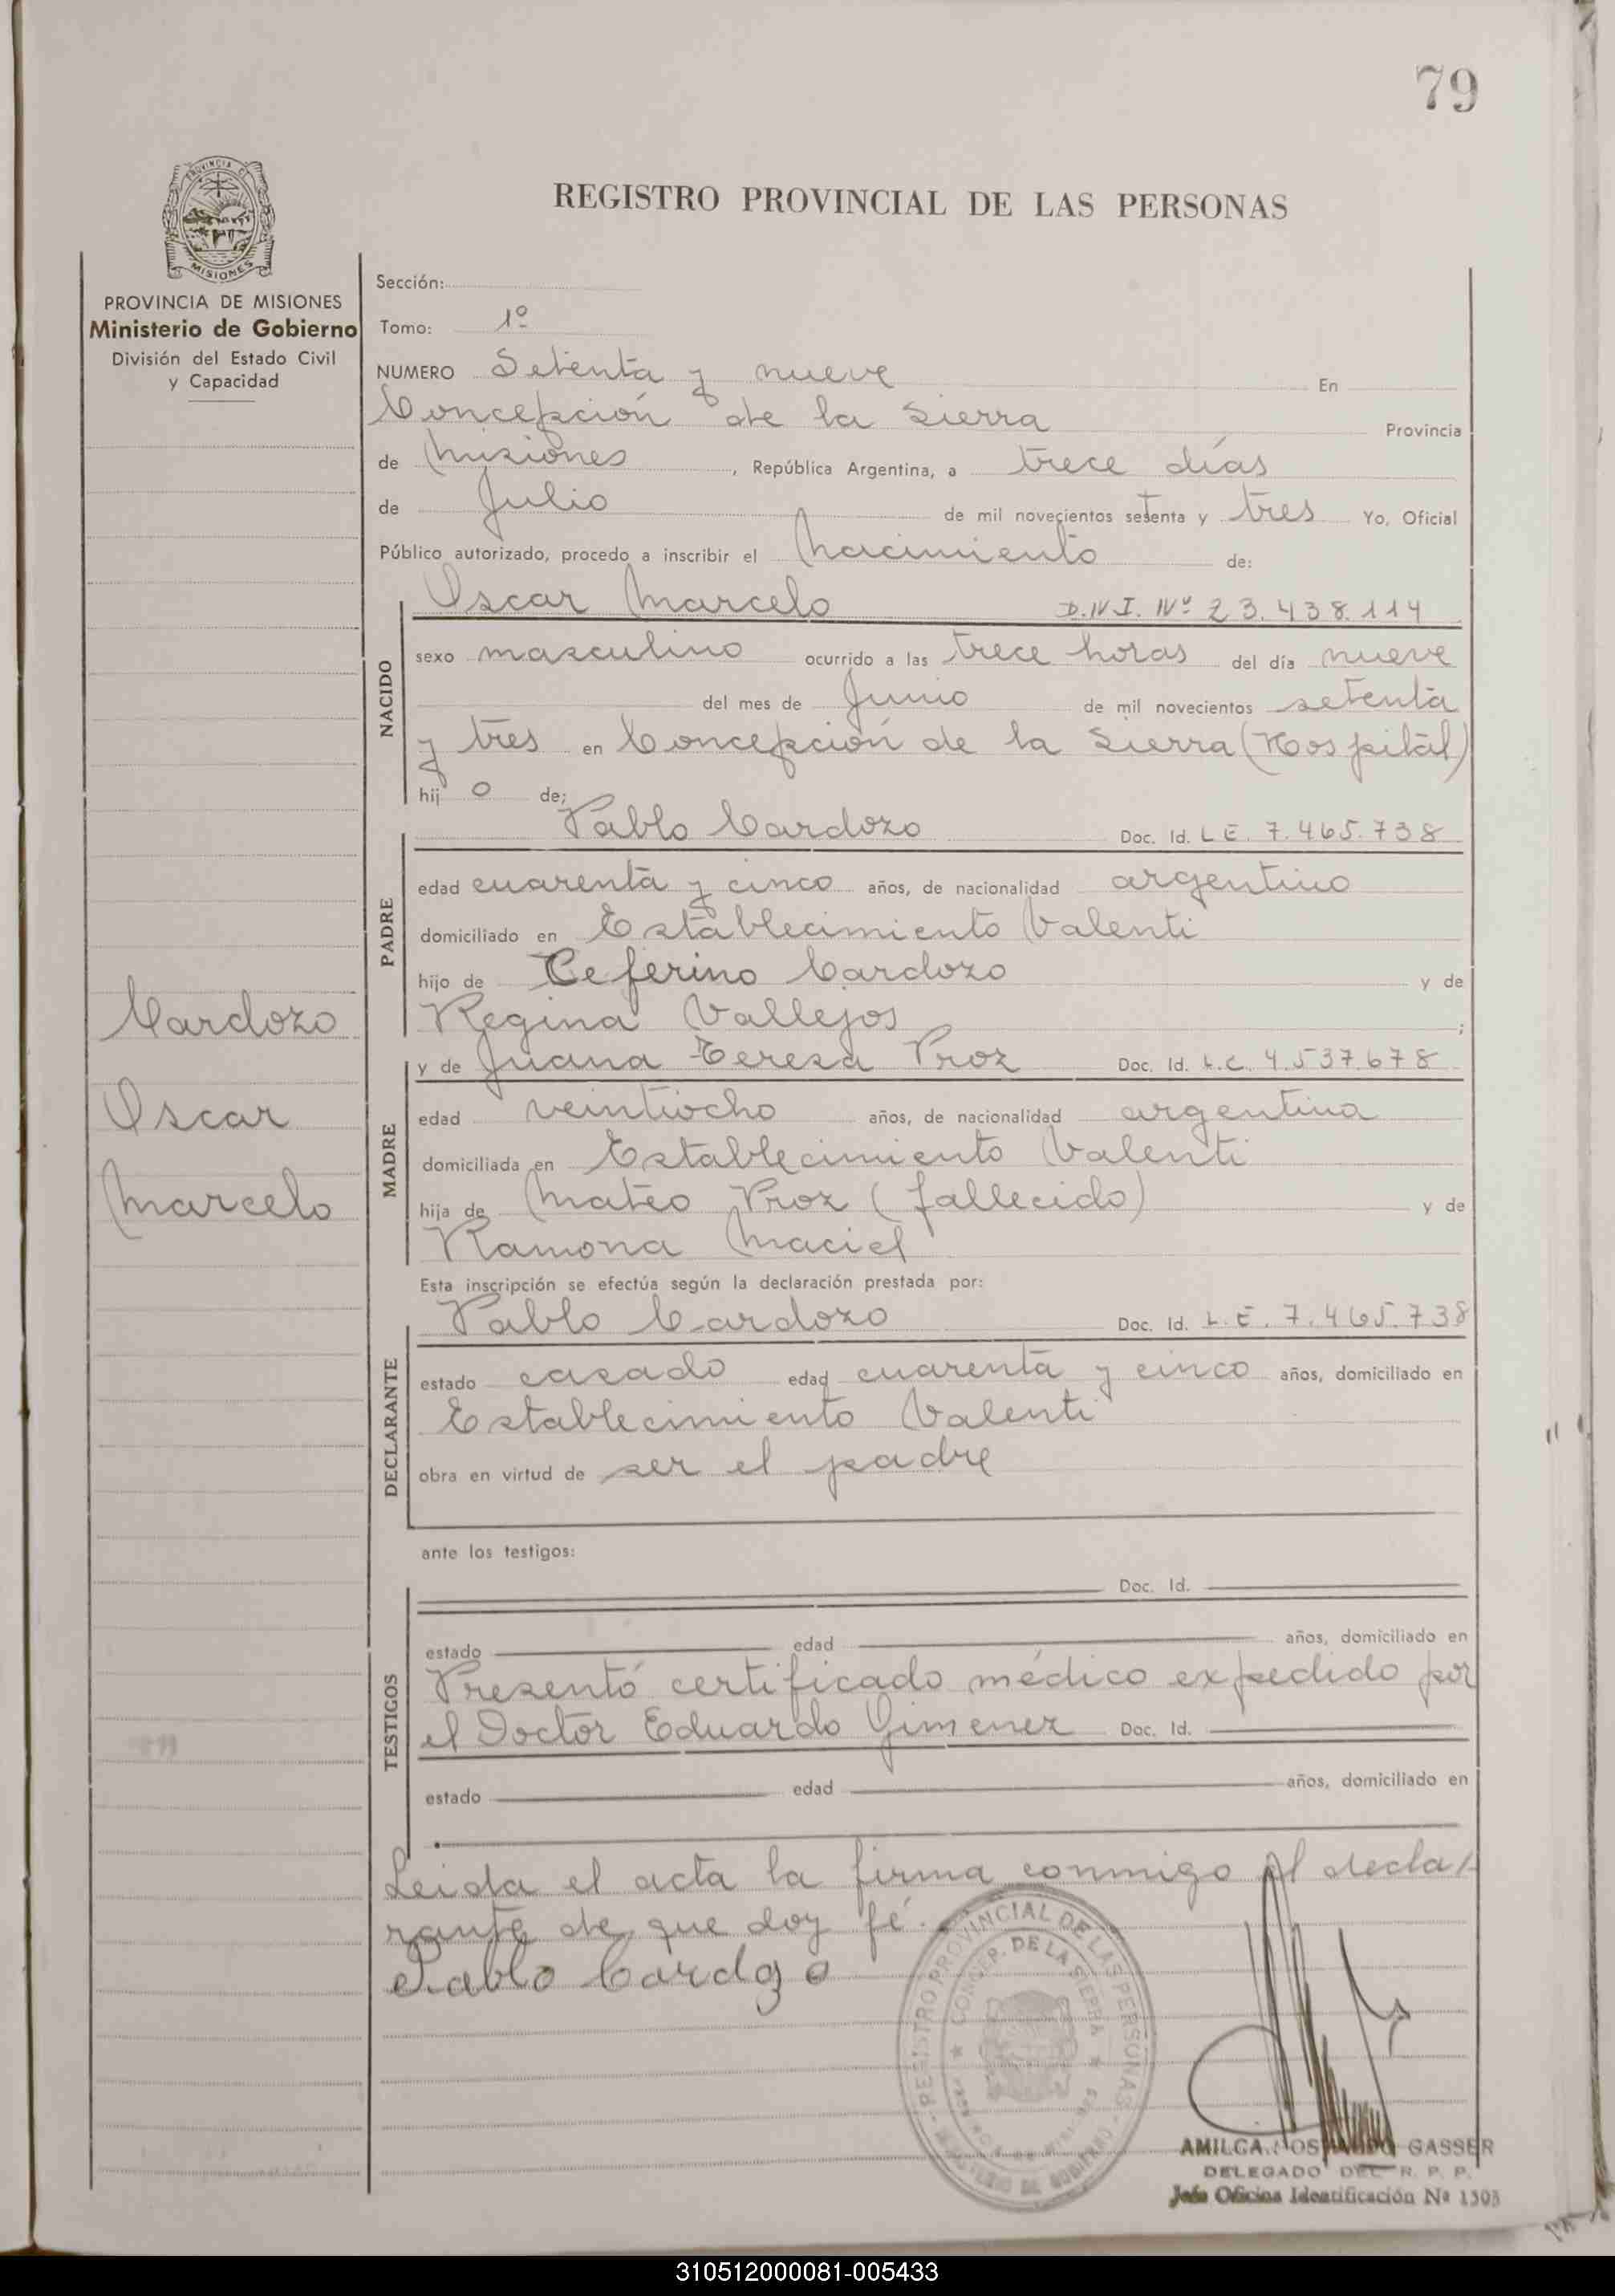 79
PROVINCIA DE MISIONES
REGISTRO PROVINCIAL DE LAS PERSONAS
PROVINCIA DE MISIONES
Ministerio de Gobierno
División del Estado Civil
y Capacidad
Sección:
Tomo: 1º
NUMERO Setenta y nueve En
Concepción de la Sierra Provincia
de Misiones, República Argentina, a trece días
de Julio de mil novecientos setenta y tres Yo, Oficial
Público autorizado, procedo a inscribir el Nacimiento de:
NACIDO
Oscar Marcelo D.N.I. Nº 23.438.114
sexo masculino ocurrido a las trece horas del día nueve
del mes de Junio de mil novecientos setenta
y tres en Concepción de la Sierra (Hospital)
hij o de;
PADRE
Pablo Cardozo Doc. Id. L E. 7.465.738
edad cuarenta y cinco años, de nacionalidad argentino
domiciliado en Establecimiento Valenti
hijo de Ceferino Cardozo y de
Regina Vallejos ;
Cardozo
Oscar
Marcelo
MADRE
y de Juana Teresa Proz Doc. Id. L.C. 4.537.678
edad veintiocho años, de nacionalidad argentina
domiciliada en Establecimiento Valenti
hija de Mateo Proz (fallecido) y de
Ramona Maciel
Esta inscripción se efectúa según la declaración prestada por:
DECLARANTE
Pablo Cardozo Doc. Id. L.E. 7.465.738
estado casado edad cuarenta y cinco años, domiciliado en
Establecimiento Valenti
obra en virtud de ser el padre
ante los testigos:
TESTIGOS
Doc. Id.
estado edad años, domiciliado en
Presentó certificado médico expedido por
el Doctor Eduardo Gimenez Doc. Id.
estado edad años, domiciliado en
Leida el acta la firma conmigo el decla-
rante de que doy fé.
Pablo Cardozo
REGISTRO PROVINCIAL DE LAS PERSONAS
CONCEP. DE LA SIERRA
GASSER
DELEGADO DEL R. P. P.
Jefe Oficina Identificación Nº 1303
310512000081-005433